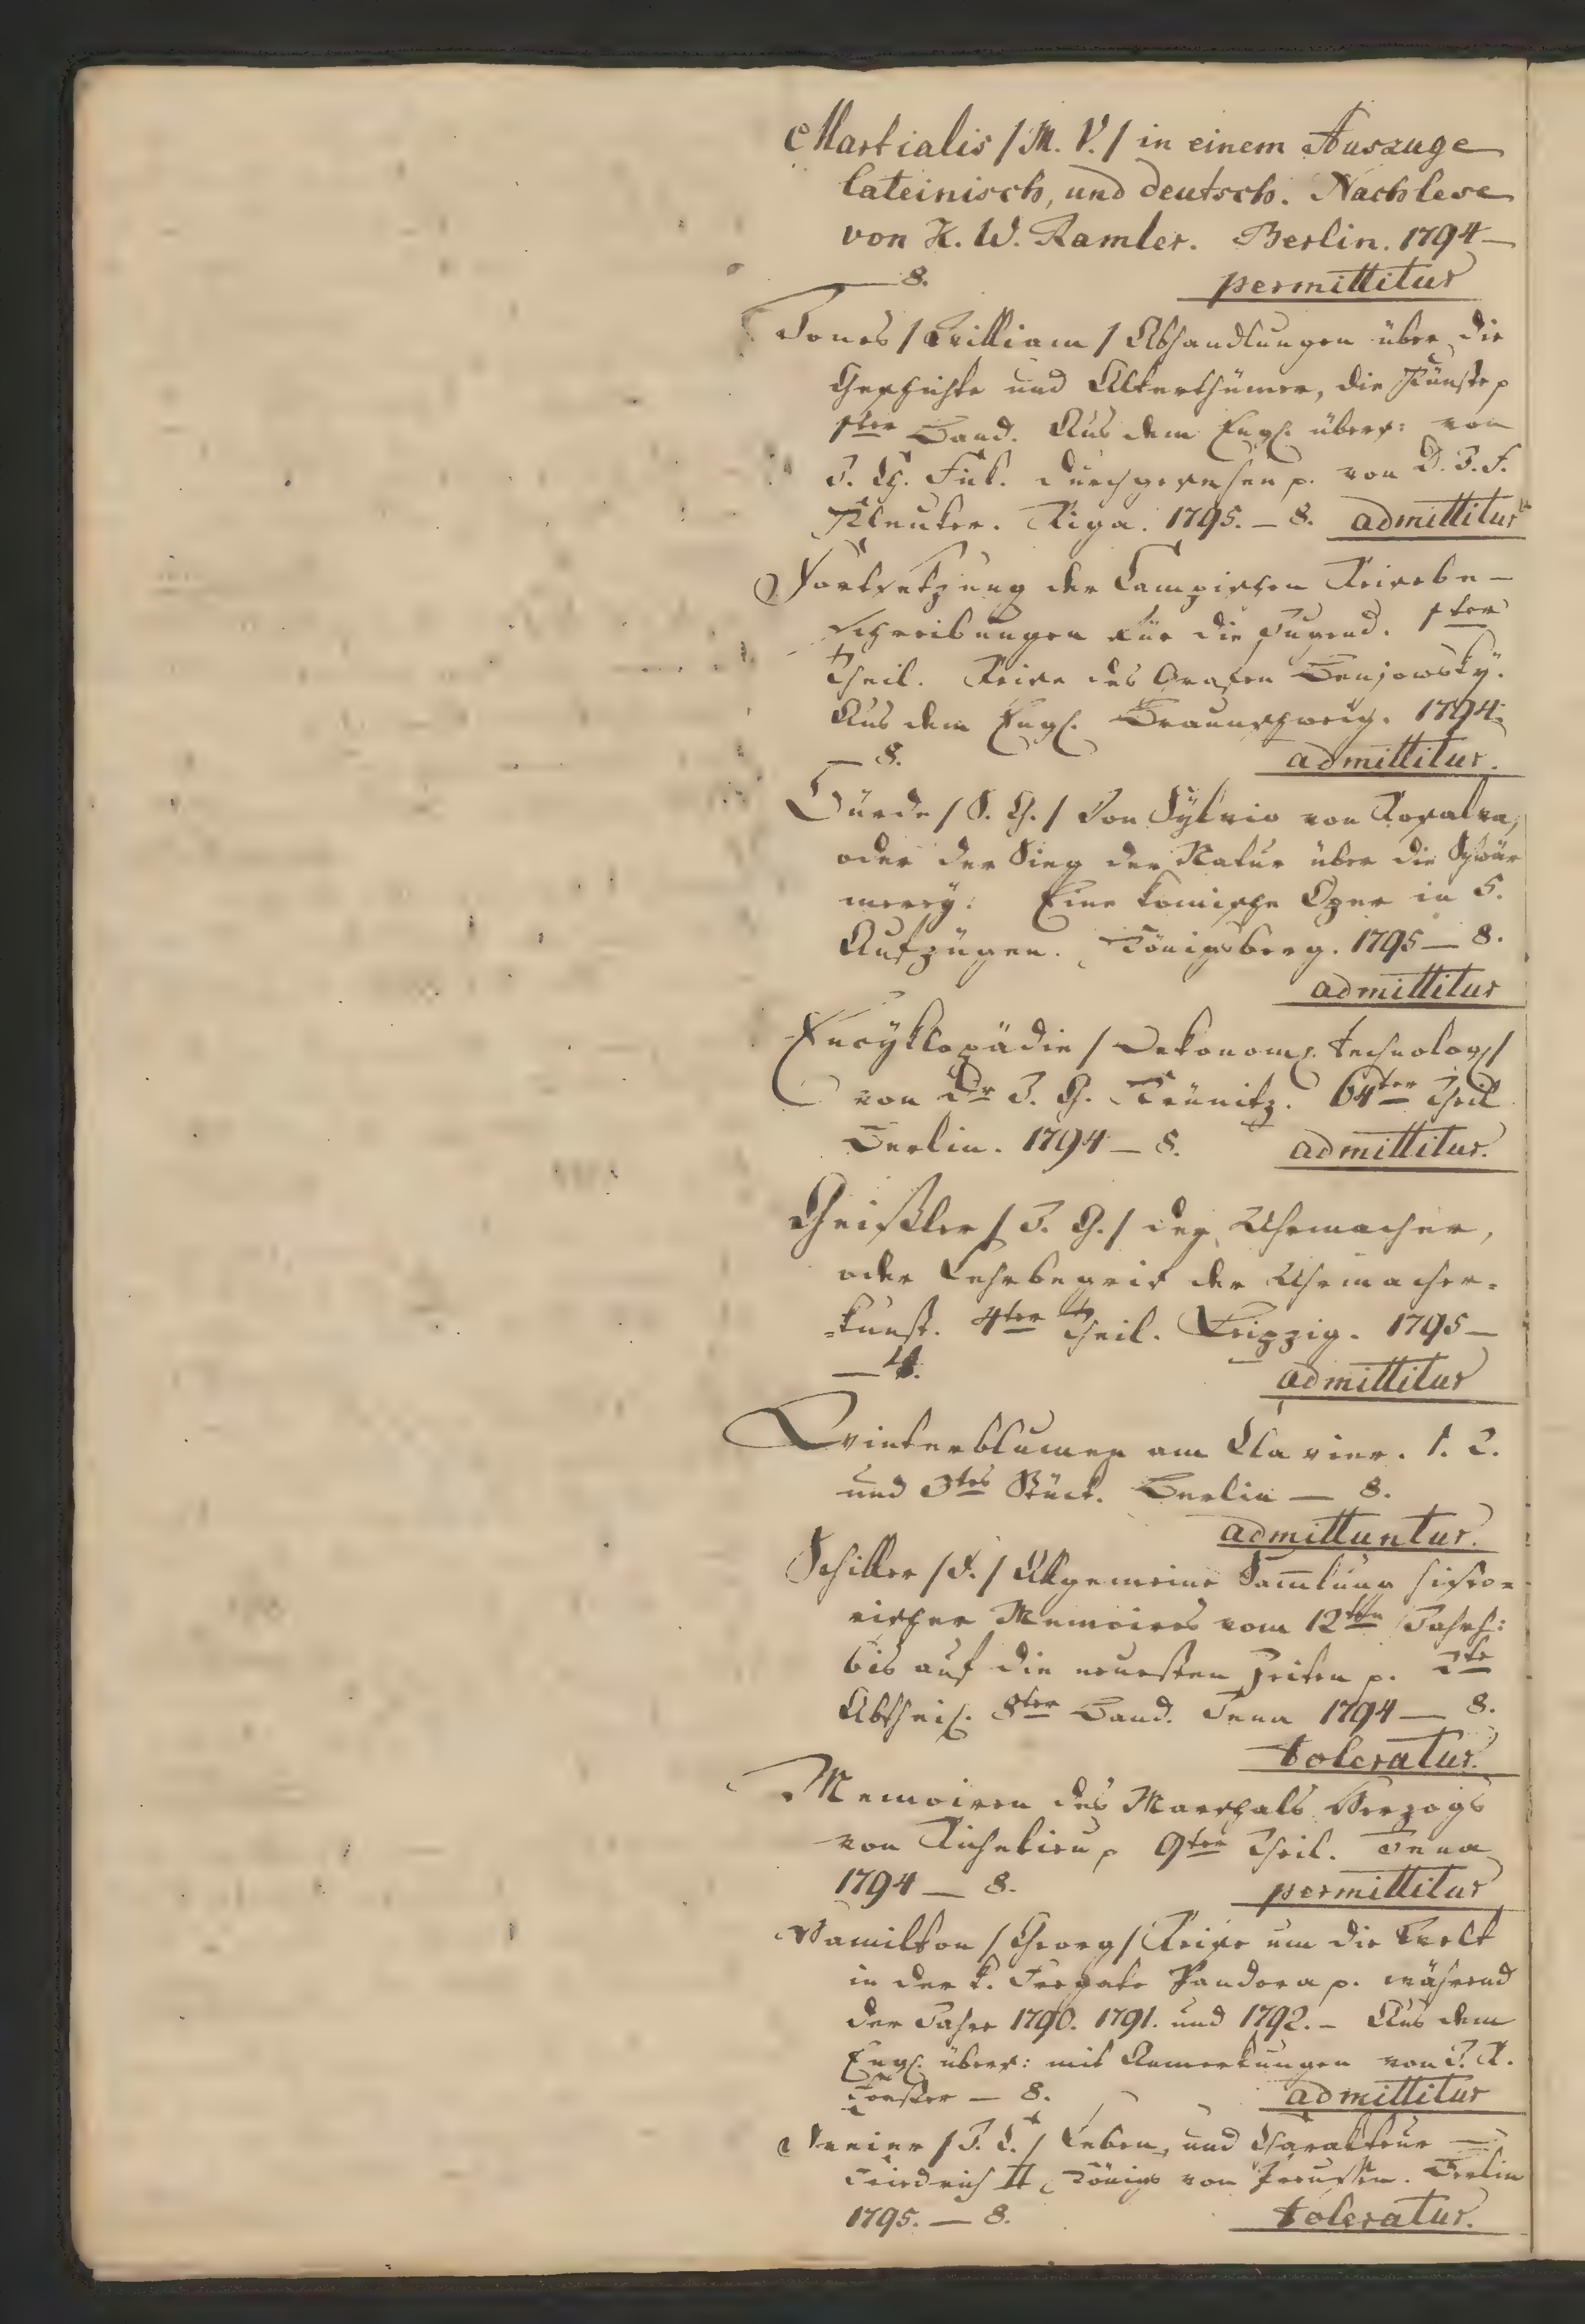 Martialis /M. V./ in einem Auszuge
lateinisch, und deutsch. Nachlese
von K. W. Ramler. Berlin. 1794 —
— 8. permittitur
Jones /William/ Abhandlungen über die
Geschichte und Alterthümer, die Künste p
1ter Band. Aus dem Engl. übers: von
J. Ch. Fik. durchgesehen p. von D. J. F.
Kleuker. Riga. 1795. — 8. admittitur
Fortsetzung der Campischen Reisebe-
schreibungen für die Jugend. 1ter
Theil. Reise des Grafen Benjowsky.
Aus dem Engl. Braunschweig. 1794.
— 8. admittitur.
Bürde /S. G./ Don Sylvio von Rosalva,
oder der Sieg der Natur über die Schwär
merey. Eine komische Oper in 5.
Aufzügen. Königsberg. 1795 — 8.
admittitur
Encyklopädie /Oekonom. technolog/
von Dr J. G. Krünitz. 64ter Theil
Berlin. 1794 — 8. admittitur.
Geißler /J. G./ der Uhrmacher,
oder Lehrbegrif der Uhrmacher-
=kunst. 4ter Theil. Leipzig. 1795 —
— 4. admittitur
Winterblumen am Clavier. 1. 2.
und 3tes Stück. Berlin — 8.
admittuntur.
Schiller /F./ Allgemeine Sam̄lung histo=
rischer Memoires vom 12ten Jahrh:
bis auf die neuesten Zeiten p. 2te
Abtheil. 8ter Band. Jena 1794 — 8.
toleratur.
Memoiren des Marschals Herzogs
von Richelieu p 9ter Theil. Jena
1794 — 8. permittitur
Hamilton /Georg/ Reise um die Welt
in der k. Fregate Pandora p. während
der Jahre 1790. 1791. und 1792. — Aus dem
Engl. übers: mit Anmerkungen von J. R.
Forster — 8. admittitur
/J. C./ Leben, und Charakteur —
Friedrich II, Königs von Preussen. Berlin
1795. — 8. toleratur.